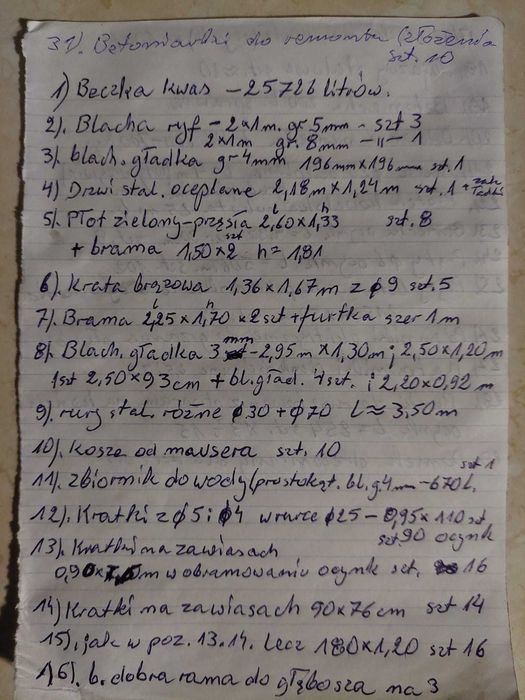 31). Betoniarki do remontu (złożenia
szt. 10
1) Beczka kwas – 25726 litrów.
2). Blacha ryf – 2×1m. gr 5mm – szt 3
2×1m gr. 8mm –"– 1
3) blach. gładka gr 4mm 196mm×196mm szt. 1
4) Drzwi stal. oceplane 2,18m×1,24m szt. 1 +
5). Płot zielony – przęsła l 2,60 × h 1,33 szt. 8
+ brama 1,50×2 szt h=1,81
6). Krata brązowa 1,36×1,67m z ϕ9 szt. 5
7). Brama l 2,25 × h 1,70 × 2szt + furtka szer 1m
8). Blach. gładka 3 mm – 2,95m×1,30m ; 2,50×1,20m
1szt 2,50×93cm + bl. gład. 4szt. ; 2,20×0,92m
9). rury stal. różne ϕ30 + ϕ70 L≈3,50m
10). Kosze od mausera szt. 10
11). zbiornik do wody (prostokąt. bl. g4mm – 670l. szt 1
12). Kratki z ϕ5 i ϕ4 w rurce ϕ25 – 0,95×110 szt
szt 90 ocynk
13). Kratki na zawiasach
0,90× m w obramowaniu ocynk szt. 16
14) Kratki na zawiasach 90×76cm szt 14
15). jak w poz. 13.14. lecz 180×1,20 szt 16
16). b. dobra rama do głębosza na 3